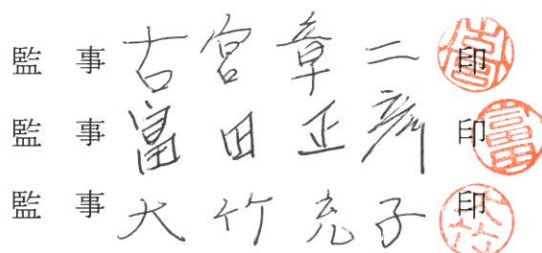 監事 古宮章二 印
監事 富田正彦 印
監事 大竹充子 印